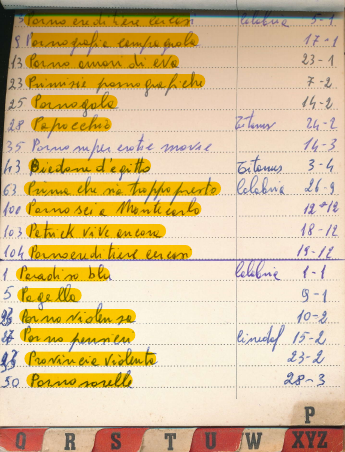 3 Porno ereditiere cercasi Calabria 3-1
9 Pornografia campagnola 17-1
13 Porno amori di eva 23-1
23 Primizie pornografiche 7-2
25 Pornogola 14-2
28 Papocchio Titanus 24-2
35 Porno super erotic movie 14-3
43 Piedone d'egitto Titanus 3-4
63 Prima che sia troppo presto Calabria 26-9
100 Porno sei a Montecarlo 12-12
103 Patrick vive ancora 18-12
104 Pornoereditiere cercasi 19-12
1 Paradiso blu Calabria 1-1
5 Pagella 9-1
Porno violenza 10-2
27 Porno pensieri Cinedaf 15-2
Provincia violenta 23-2
50 Porno sorelle 28-3
P
Q R S T U W XYZ